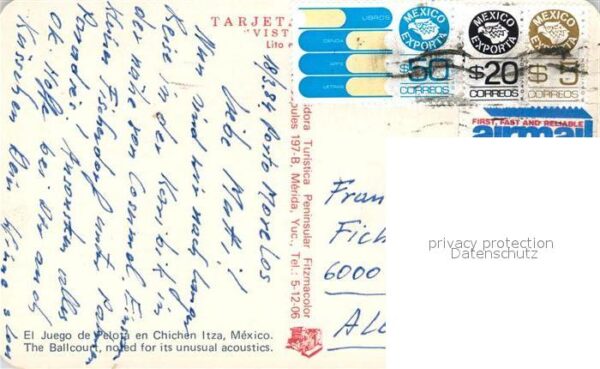 TARJETA
"VISTA
Lito e
LIBROS
CIENCIA
ARTE
LETRAS
MEXICO EXPORTA
$50
CORREOS
MEXICO EXPORTA
$20
CORREOS
MEXICO EXPORTA
$5
CORREOS
FIRST, FAST AND RELIABLE
airmail
dora Turística Peninsular Fitzmacolor
ules 197-B, Mérida, Yuc., Tel.: 5-12-06
Puerto Morelos
Liebe Mutti!
Nun sind wir nach langer
in der Karibik in
der nähe von Cozumel. Einsam
Kleines Fischerdorf unter Palmen
Paradies! Ansonsten alles
OK. Hoffe bei Dir auch
Küsschen Dein
Fran
Fich
6000
privacy protection
Datenschutz
El Juego de Pelota en Chichen Itza, México.
The Ballcourt, noted for its unusual acoustics.